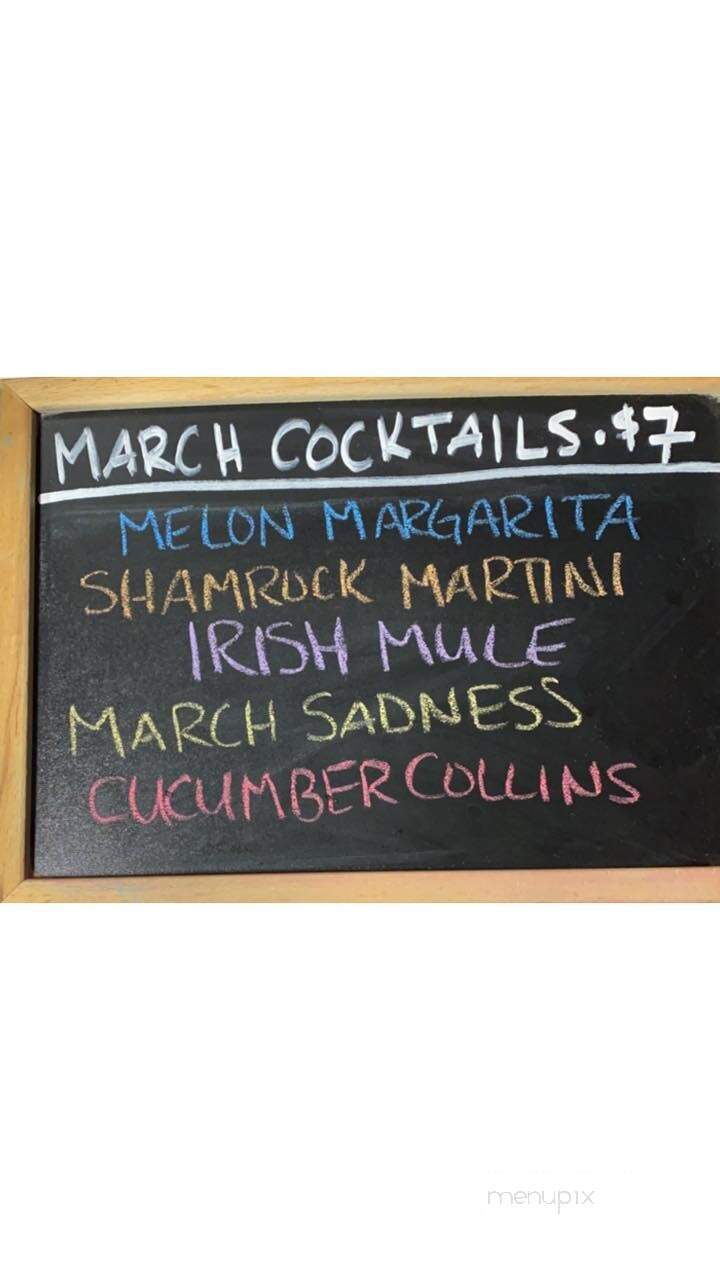 MARCH COCKTAILS. $7
MELON MARGARITA
SHAMROCK MARTINI
IRISH MULE
MARCH SADNESS
CUCUMBER COLLINS
menupix